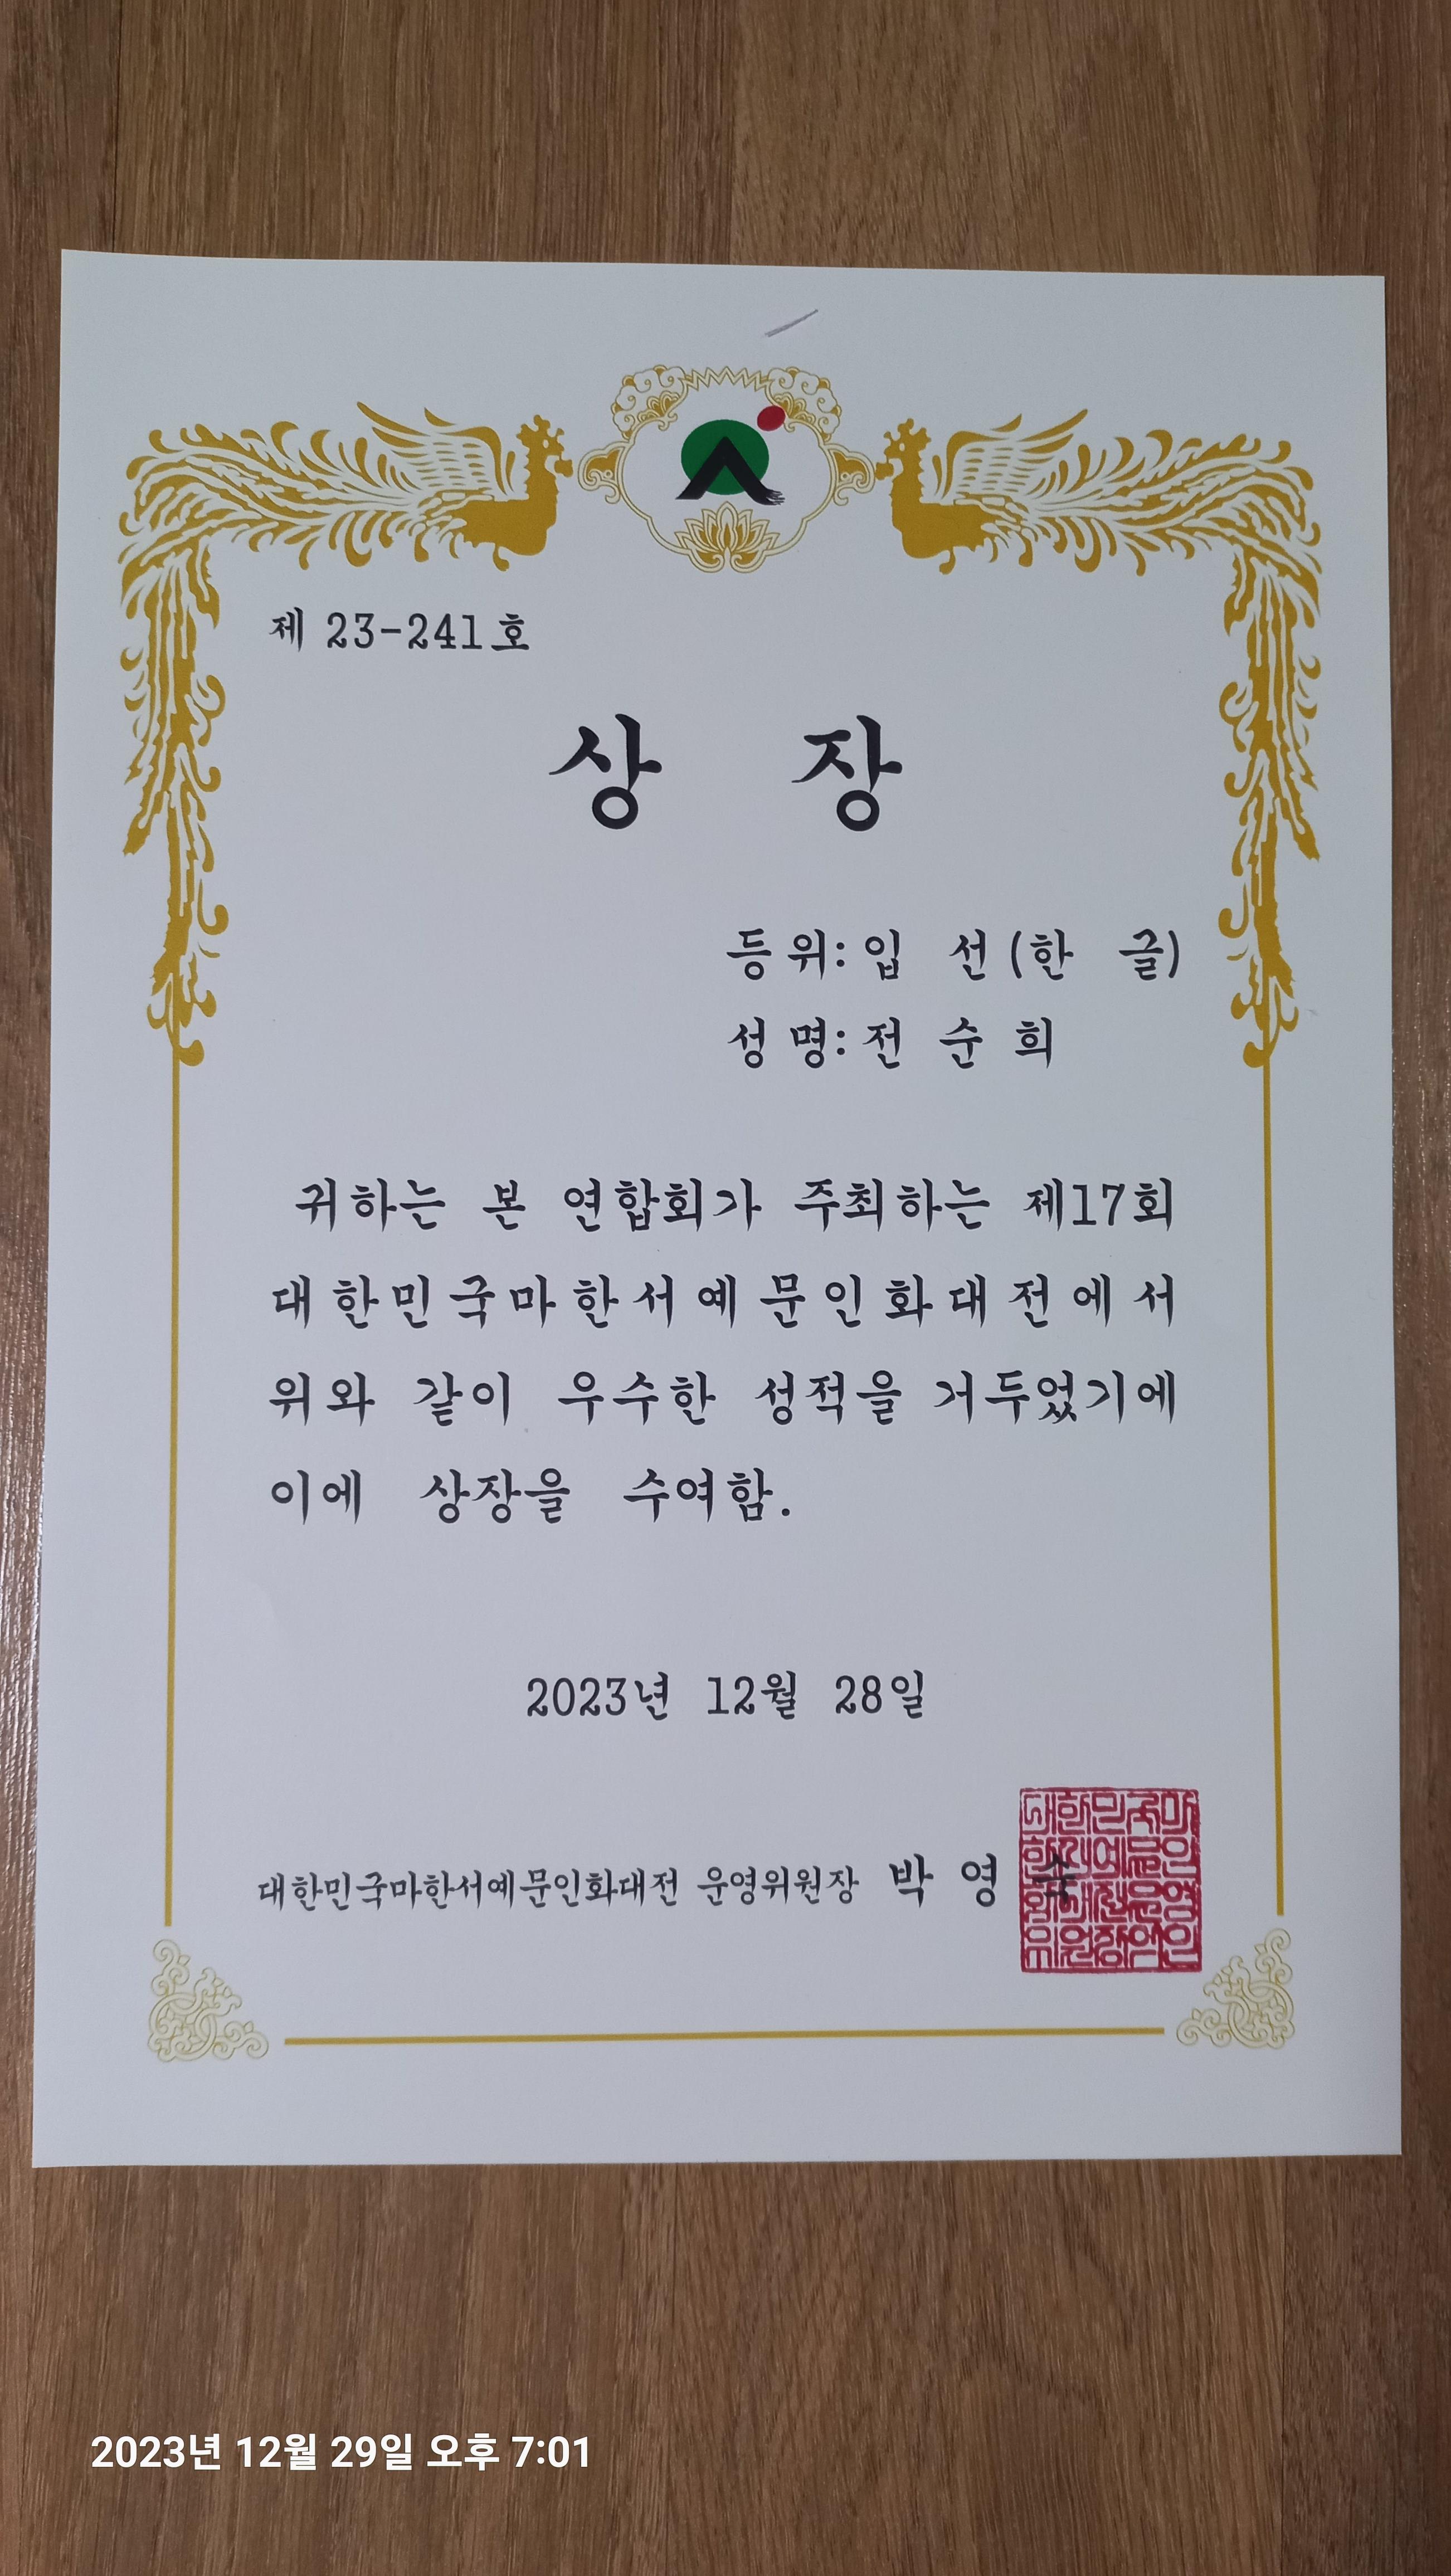 제 23-241호
상 장
등 위: 입 선 (한 글)
성 명: 전 순 희
귀하는 본 연합회가 주최하는 제17회
대한민국마한서예문인화대전에서
위와 같이 우수한 성적을 거두었기에
이에 상장을 수여함.
2023년 12월 28일
대한민국마한서예문인화대전 운영위원장 박 영 숙
2023년 12월 29일 오후 7:01